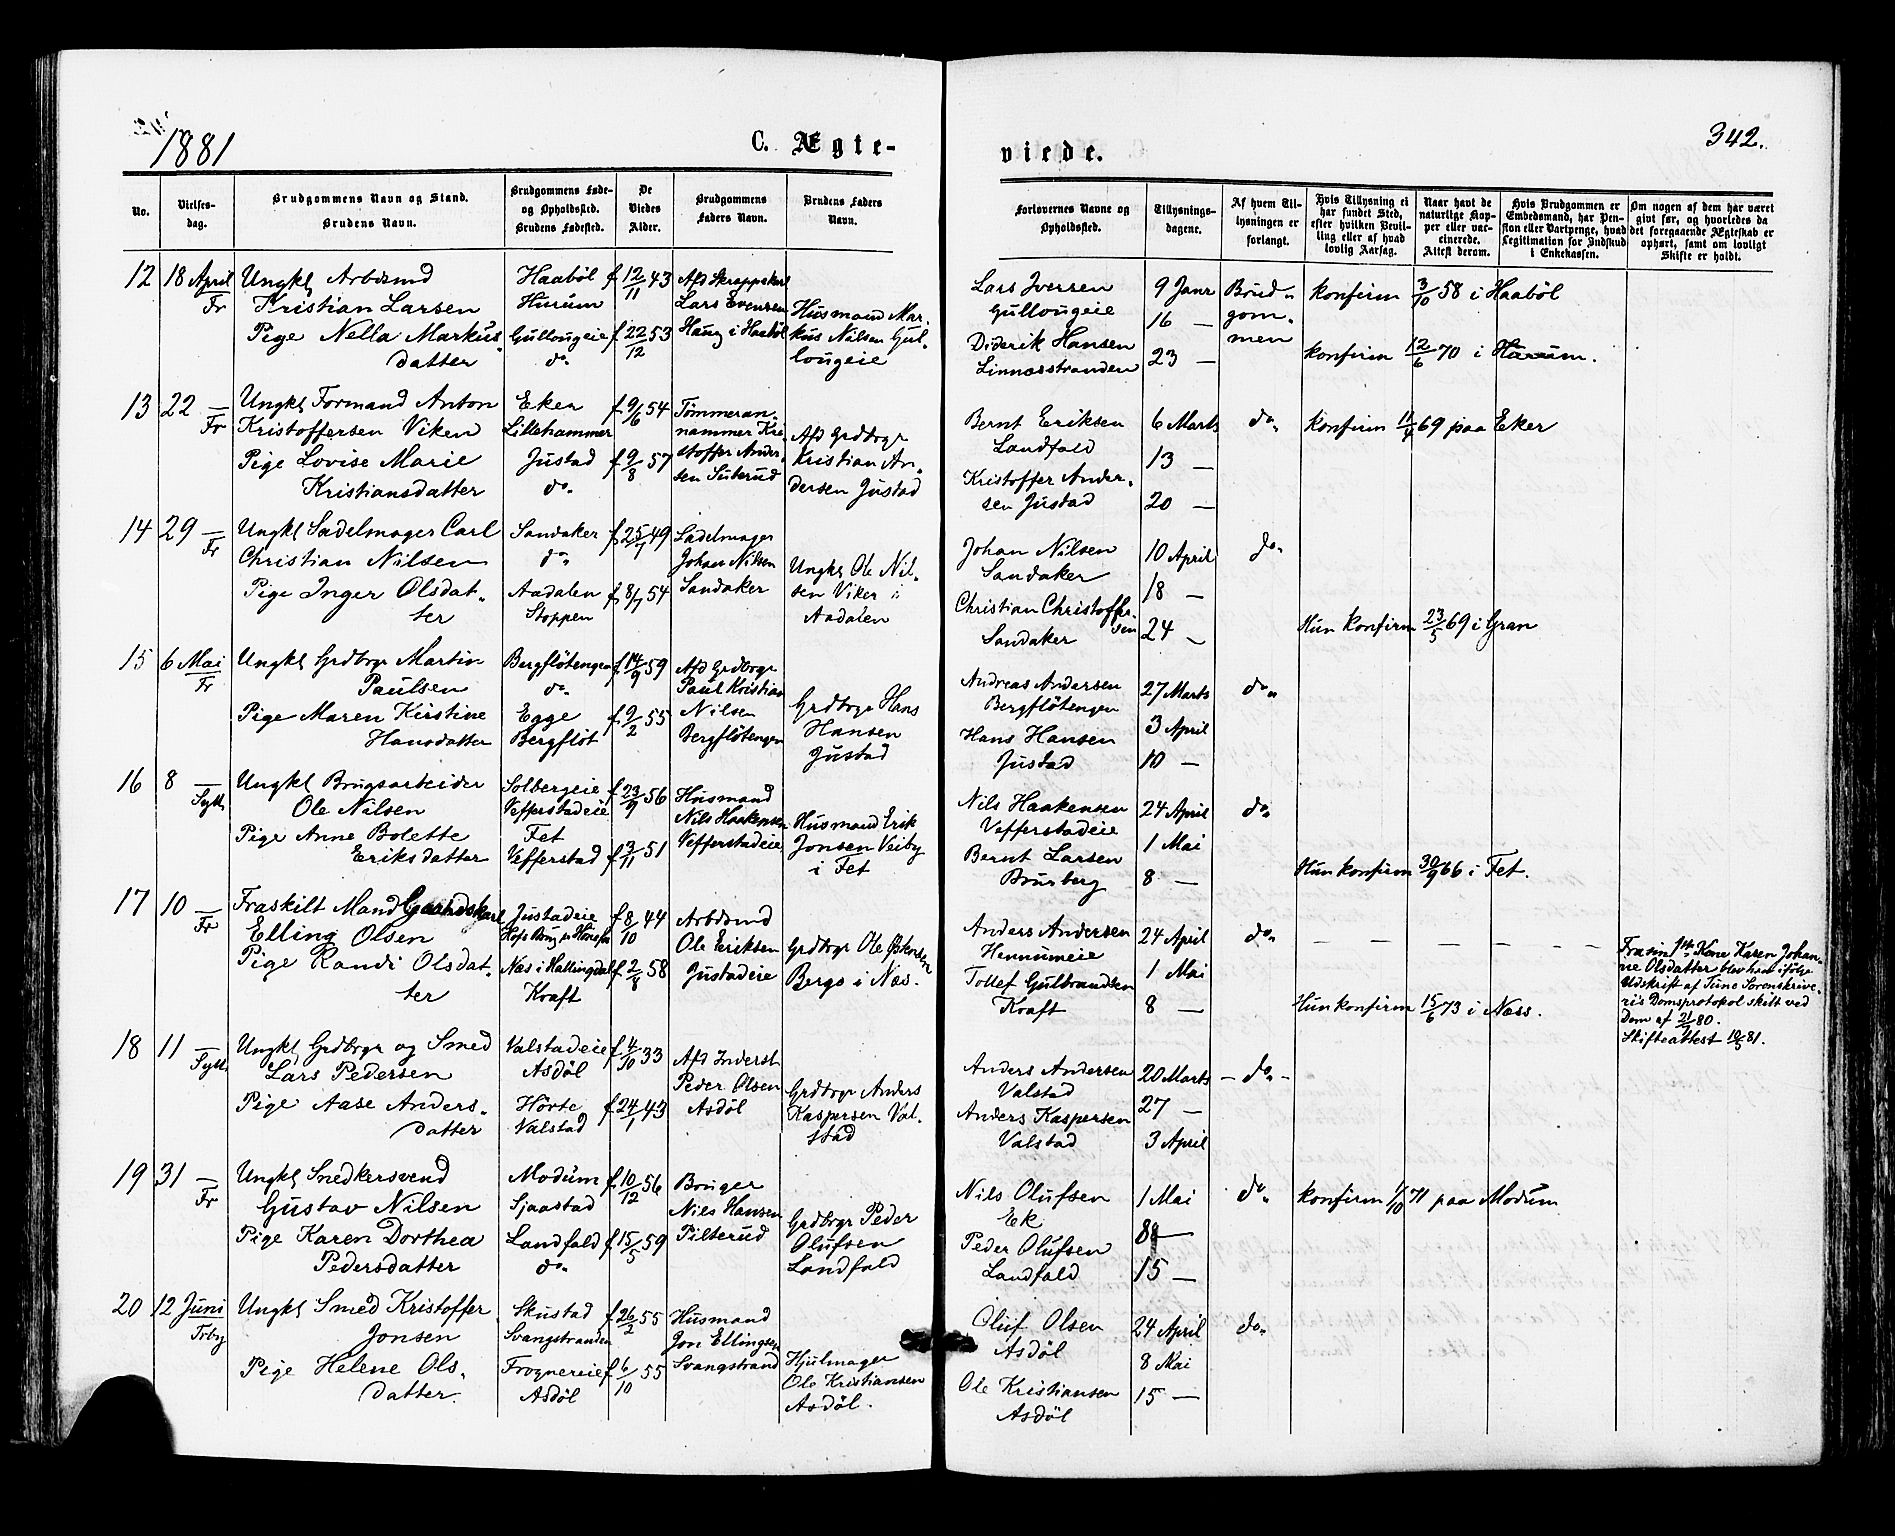 1881
C. Ægte-
viede.
342.
No.
Vielses-
dag.
Brudgommens Navn og Stand.
Brudens Navn.
Brudgommens Føde-
og Opholdssted.
Brudens Fødested.
De
Viedes
Alder.
Brudgommens
Faders Navn.
Brudens Faders
Navn.
Forlovernes Navne og
Opholdssted.
Tillysnings-
dagene.
Af hvem Til-
lysningen er
forlangt.
Hvis Tillysning ei
har fundet Sted,
efter hvilken Bevil-
ling eller af hvad
lovlig Aarsag.
Naar havt de
naturlige Kop-
per eller vac-
cinerede.
Attest derom.
Hvis Brudgommen er
Embedsmand, har Pen-
sion eller Vartpenge, hvad
Legitimation for Indskud
i Enkekassen.
Om nogen af dem har været
givt før, og hvorledes da
det foregaaende Ægteskab er
ophørt, samt om lovligt
Skifte er holdt.
12
18 April
Fr
Ungkl Arbdsmd
Kristian Larsen
Pige Nella Markus-
datter
Haabøl
Hurum
Gullougeie
do.
f 12/11 43
f 22/12 53
Afd Skreppekarl
Lars Evensen
Haug i Haabøl
Husmand Mar-
kus Nilsen Gul-
lougeie
Lars Iversen
Gullougeie
Diderik Hansen
Linnæsstranden
9 Janr
16 —
23 —
Brud-
gom-
men
konfirm 3/10 58 i Haabøl
konfirm 12/6 70 i Hurum.
13
22 —
Fr
Ungkl Formand Anton
Kristoffersen Viken
Pige Lovise Marie
Kristiansdatter
Eker
Lillehammer
Justad
do.
f 9/6 54
f 9/8 57
Tømmeran-
nammer Kri-
stoffer Ander-
sen Suterud
Afd Grdbrgr
Kristian An-
dersen Justad
Bernt Eriksen
Landfald
Kristoffer Ander-
sen Justad
6 Marts
13 —
20 —
do.
konfirm 11/4 69 paa Eker
14
29 —
Fr
Ungkl Sadelmager Carl
Christian Nilsen
Pige Inger Olsdat-
ter
Sandaker
do.
Aadalen
Stoppen
f 25/7 49
f 8/7 54
Sadelmager
Johan Nilsen
Sandaker
Ungkl Ole Nil-
sen Viker i
Aadalen
Johan Nilsen
Sandaker
Christian Christoffer-
sen
Sandaker
10 April
18 —
24 —
do.
Hun konfirm 23/5 69 i Gran
15
6 Mai
Fr
Ungkl Grdbrgr Martin
Paulsen
Pige Maren Kirstine
Hansdatter
Bergfløtengen
do.
Egge
Bergfløt
f 14/9 59
f 9/2 55
Afd Grdbrgr
Paul Kristian
Nilsen
Bergfløtengen
Grdbrgr Hans
Hansen
Justad
Andreas Andersen
Bergfløtengen
Hans Hansen
Justad
27 Marts
3 April
10 —
do.
16
8 —
Sylt
Ungkl Brugsarbeider
Ole Nilsen
Pige Anne Bolette
Eriksdatter
Solbergeie
Vefferstadeie
Fet
Vefferstad
f 23/9 56
f 13/11 51
Husmand
Nils Haakensen
Vefferstadeie
Husmand Erik
Jonsen Veiby
i Fet
Nils Haakensen
Vefferstadeie
Bernt Larsen
Brurberg
24 April
1 Mai
8 —
do.
Hun konfirm 30/9 66 i Fet.
17
10 —
Fr
Fraskilt Mand Gaardskarl
Elling Olsen
Pige Randi Olsdat-
ter
Justadeie
Hofs Brug pr Hønefos
Næs i Hallingdal
Kraft
f 8/10 44
f 2/8 58
Arbdsmd
Ole Eriksen
Justadeie
Grdbrgr Ole Østensen
Bergo i Næs.
Anders Andersen
Hennumeie
Tollef Gulbrandsen
Kraft
24 April
1 Mai
8 —
do.
Hun konfirm 15/6 73 i Næss.
Fra sin 1ste Kone Karen Johan-
ne Olsdatter blev han ifølge
Udskrift af Tune Sorenskrive-
ris Domsprotokol skilt ved
Dom af 21/7 80.
Skifteattest 10/5 81.
18
11 —
Sylt
Ungkl Grdbrgr og Smed
Lars Pedersen
Pige Aase Anders-
datter
Valstadeie
Asdøl
Hørte
Valstad
f 4/10 33
f 24/1 43
Afd Inderst
Peder Olsen
Asdøl
Grdbrgr Anders
Kaspersen Val-
stad
Anders Andersen
Valstad
Anders Kaspersen
Valstad
20 Marts
27 —
3 April
— do. —
19
31 —
Fr
Ungkl Snedkersvend
Gustav Nilsen
Pige Karen Dorthea
Pedersdatter
Modum
Sjaastad
Landfald
do.
f 10/12 56
f 15/5 59
Bruger
Nils Hansen
Pilterud
Grdbrgr Peder
Olufsen
Landfald
Nils Olufsen
Ek
Peder Olufsen
Landfald
1 Mai
8 —
15 —
do.
konfirm 1/10 71 paa Modum
20
12 Juni
Trbg
Ungkl Smed Kristoffer
Jonsen
Pige Helene Ols-
datter.
Skustad
Svangstranden
Frognereie
Asdøl
f 26/2 55
f 6/10 55
Husmand
Jon Ellingsen
Svangstrand
Hjulmager
Ole Kristiansen
Asdøl.
Oluf Olsen
Asdøl
Ole Kristiansen
Asdøl
24 April
8 Mai
15 —
do.